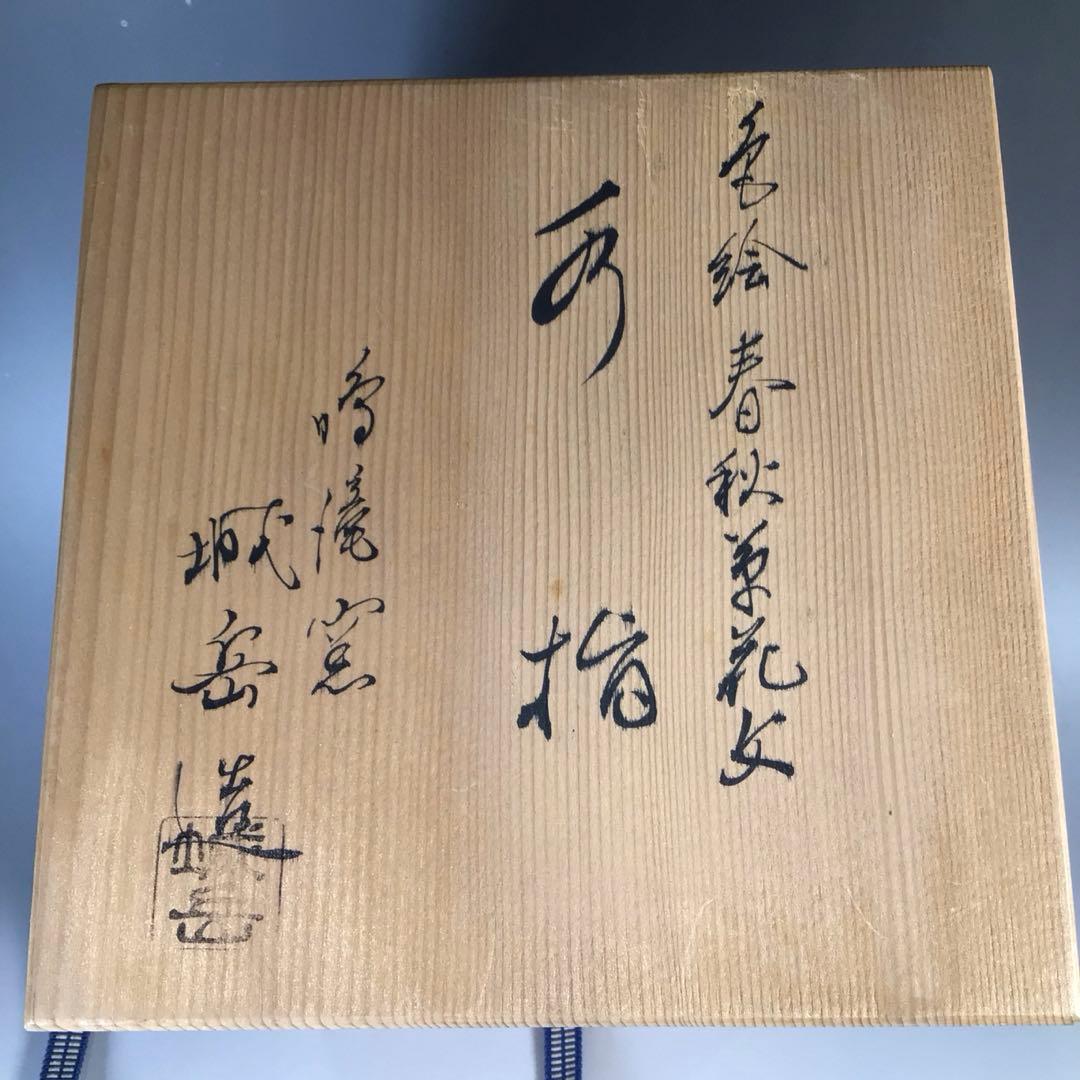 色絵春秋草花文
水指
鳴滝窯
城岳造
城岳